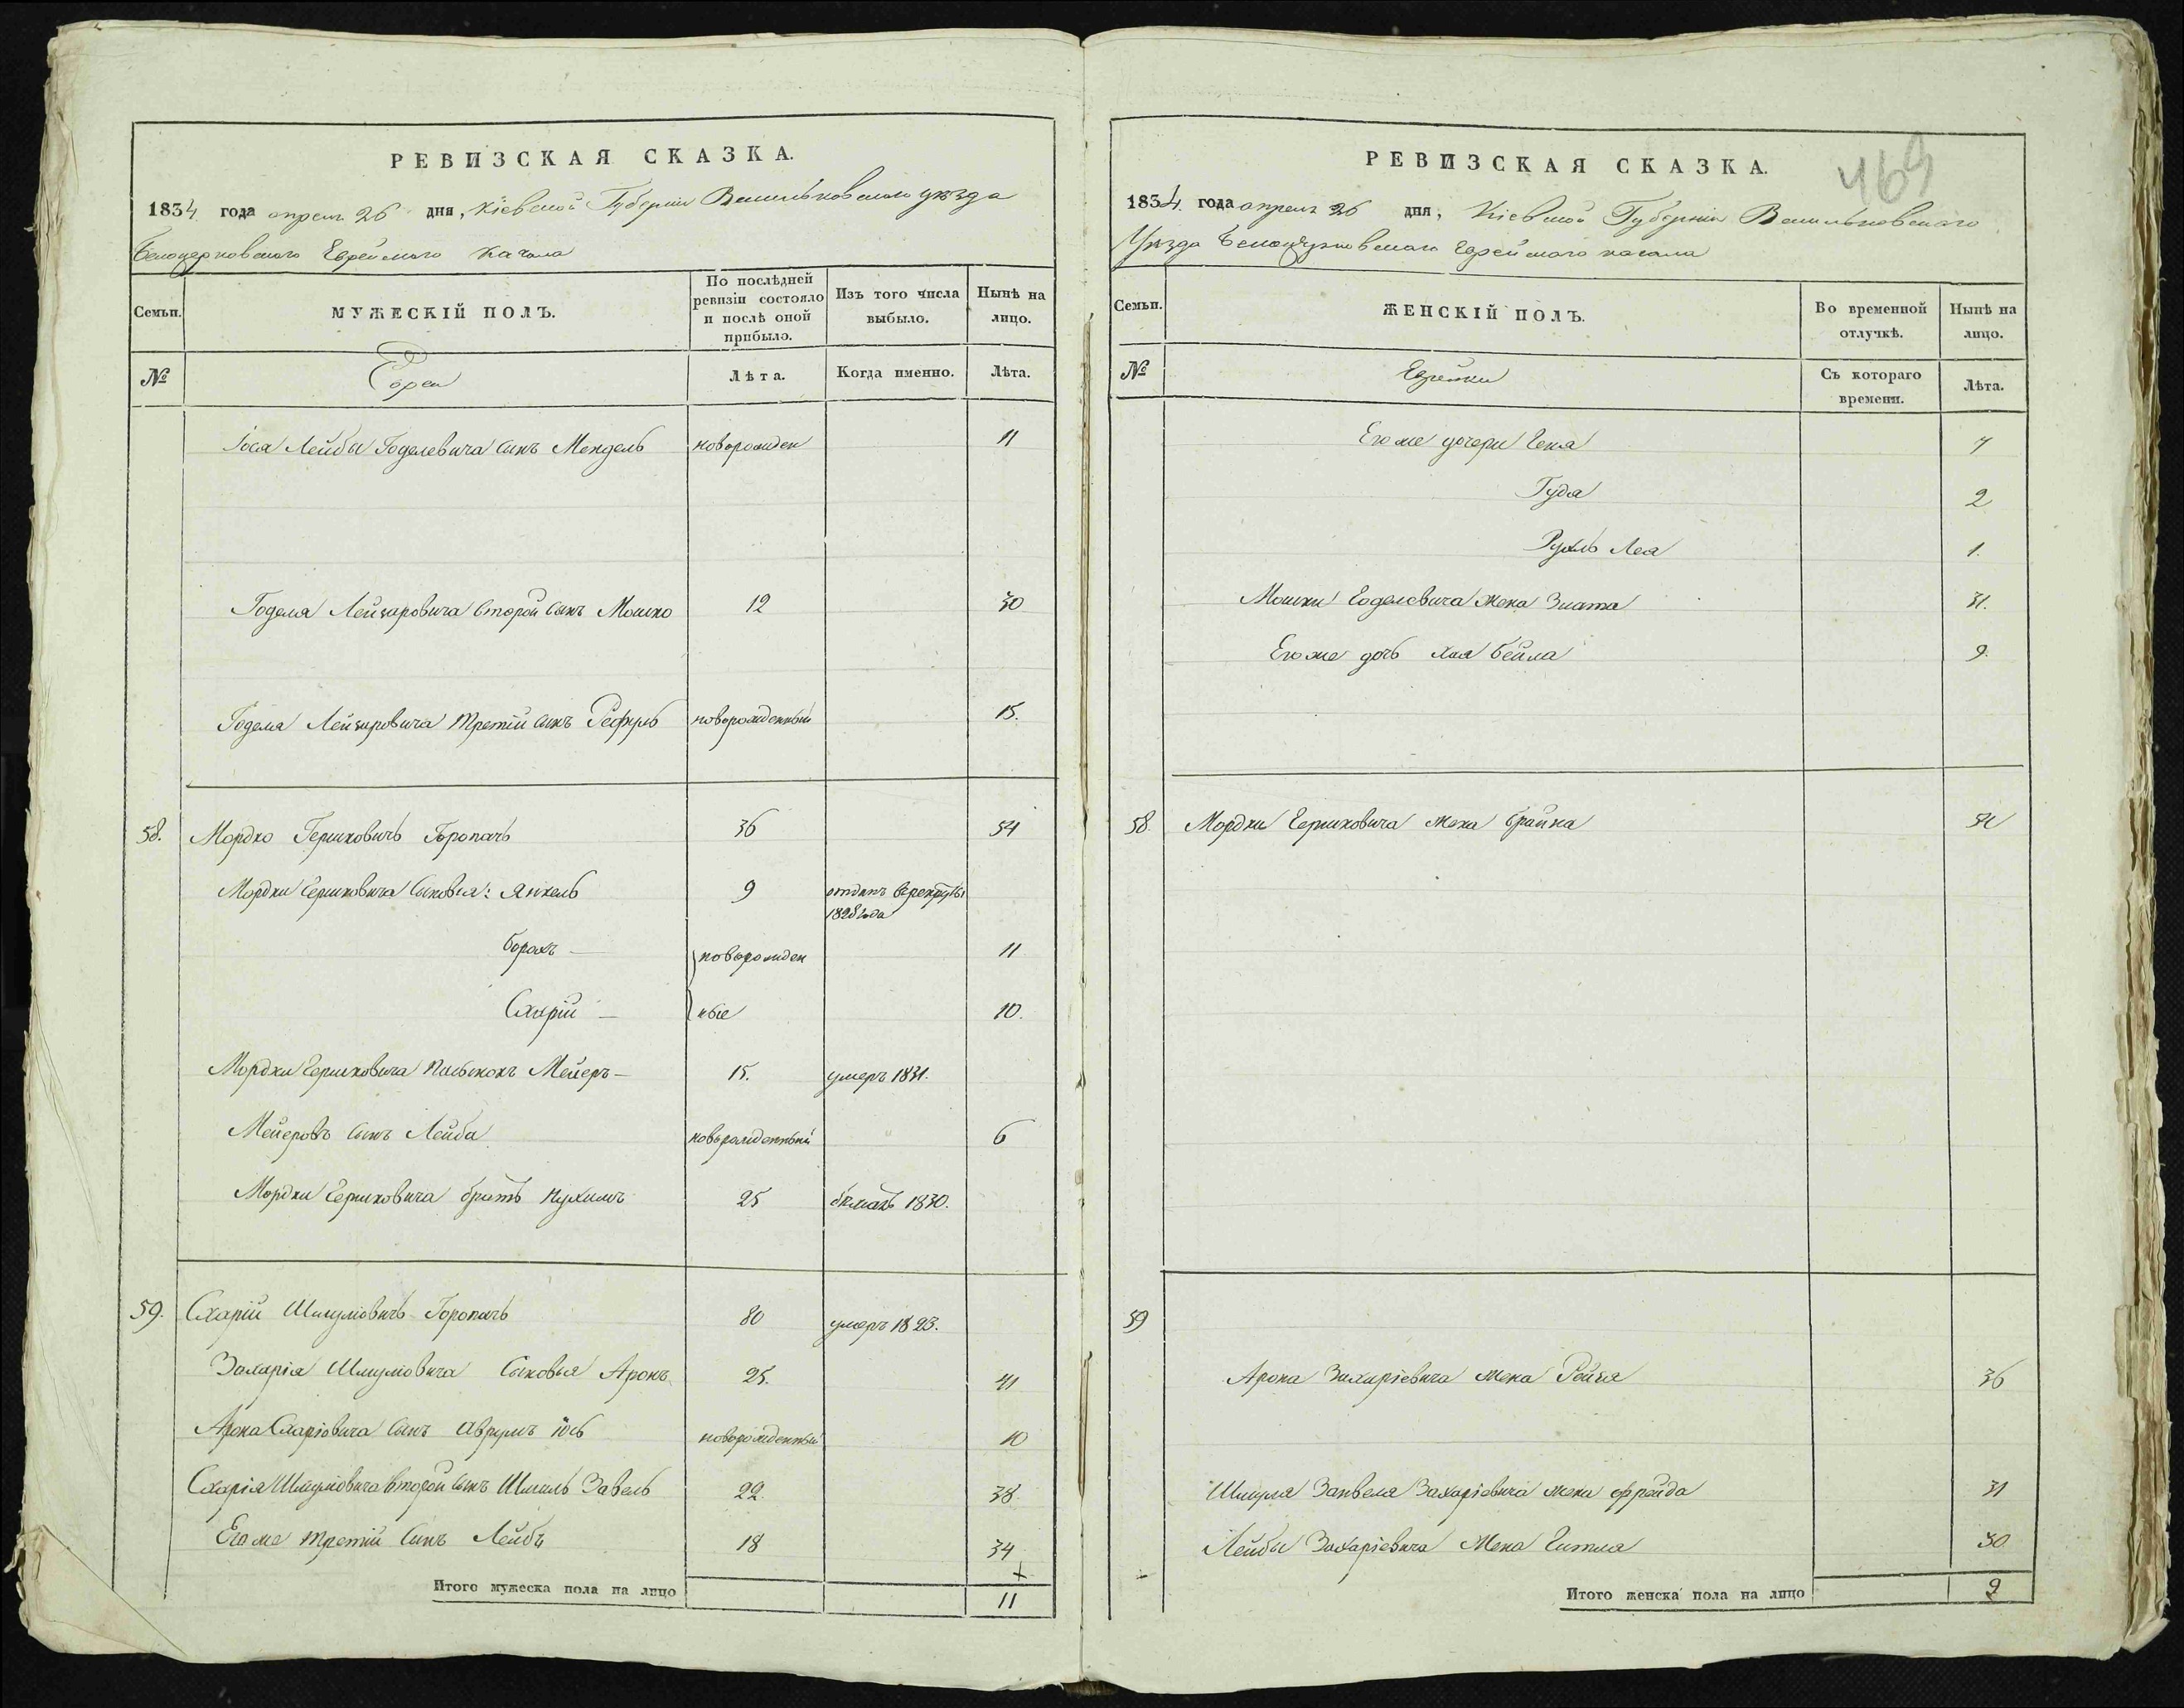 РЕВИЗСКАЯ СКАЗКА.
1834 года апреля 26 дня, Кіевской Губерніи Васильковскаго уѣзда
Белоцерковскаго Еврейскаго кагала
Семьи.
МУЖЕСКІЙ ПОЛЪ.
По послѣдней ревизіи состояло и послѣ оной прибыло.
Изъ того числа выбыло.
Нынѣ на лицо.
№
Евреи
Лѣта.
Когда именно.
Лѣта.
Іося Лейбы Годелевича сынъ Мендель новорожден 11
Годеля Лейзаровича второй сынъ Мошко 12 30
Годеля Лейзаровича третій сынъ новорожденный 15.
58. Мордко Гершковичъ Горопачъ 36 54
Мордки Гершковича сыновья: Янкель 9 отданъ в рекруты
1828 года
Борохъ — новорожден 11
Схарій — ные 10.
Мордки Гершковича Мейеръ — 15. умеръ 1831.
Мейеровъ сынъ Лейба новорожденный 6
Мордки Гершковича братъ Нухимъ 25 бежалъ 1830.
59. Схарій Шмуліовичъ Горопачъ 80 умеръ 1823.
Захарія Шмуліовича сыновья Аронъ 25. 41
Арона Схаріовича сынъ Аврумъ Іось новорожденный 10
Схарія Шмуліовича второй сынъ Шмиль Завель 22. 38
Его же третій сынъ Лейба 18 34
Итого мужеска пола на лицо 11
469
РЕВИЗСКАЯ СКАЗКА.
1834 года апреля 26 дня, Кіевской Губерніи Васильковскаго
Уѣзда Белоцерковскаго Еврейскаго кагала
Семьи.
ЖЕНСКІЙ ПОЛЪ.
Во временной отлучкѣ.
Нынѣ на лицо.
№
Еврейки
Съ котораго времени.
Лѣта.
Его же дочери Геня
Гуда 2
Рухль Лея 1.
Мошки Годелевича жена Злата 31.
Его же дочь Хая Бейла 9.
58. Мордки Гершковича жена Брайна
59
Арона Захаріевича жена Рейзя 36
Шмуля Занвеля Захаріевича жена Фрейда 31
Лейбы Захаріевича жена Гитля 30
Итого женска пола на лицо 9